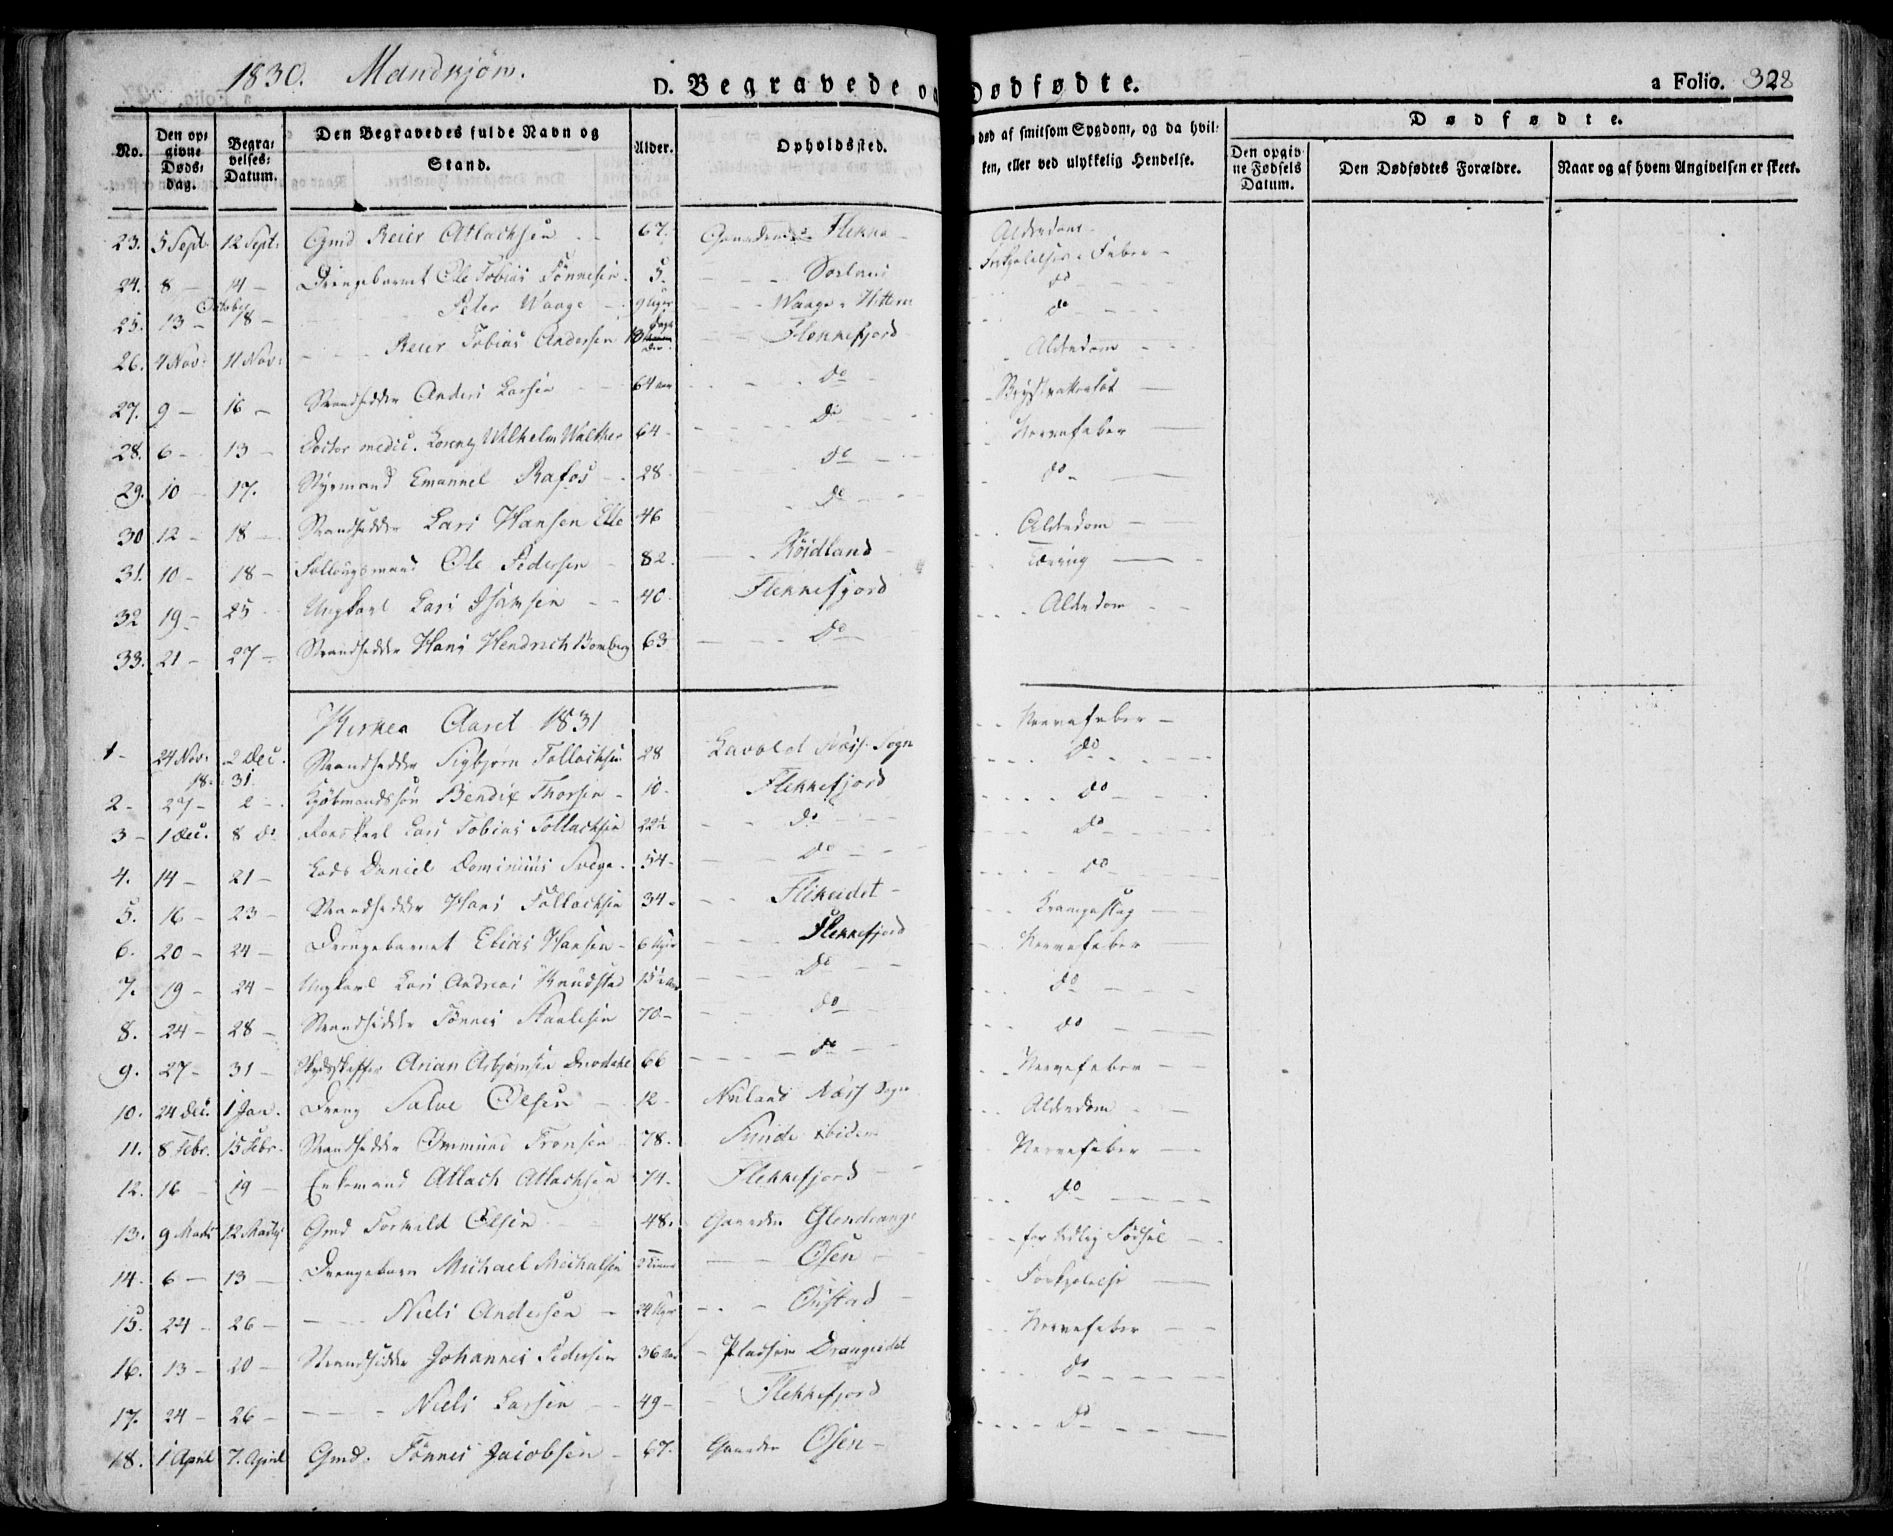 1830. Mandkjøn.
D. Begravede og Dødfødte.
a Folio. 328
No.
Den opgivne Dødsdag.
Begravelses-Datum.
Den Begravedes fulde Navn og Stand.
Alder.
Opholdssted.
død af smitsom Sygdom, og da hvilken, eller ved ulykkelig Hendelse.
Dødfødte.
Den opgivne Fødsels Datum.
Den Dødfødtes Forældre.
Naar og af hvem Angivelsen er skeet.
23. 5 Sept. 12 Sept. Gmd Reier Atlachsen 67. Gaarden Flikke Alderdom
24. 8 — 14 — Drengebarnet Ole Tobias Tønnesen 5. Sørland Forkjølelses Feber
October
25. 13 — 18 — Peter Waage 9 Uger Waage Hitterø do
26. 4 Nov: 11 Nov: Reier Tobias Andersen 13 Dage Flekkefjord do
27. 9 — 16 — Strandsidder Anders Larsen 64 Aar do Alderdom
28. 6 — 13 — Doctor medic. Lorentz Wilhelm Walther 64 do
29. 10 17. Styrmand Emanuel Rafos 28 do Nervefeber
30 12 — 18 — Strandsidder Lars Hansen Elle 46 do do
31. 10 — 18 — Ole Pedersen 82. Høidland Alderdom
32 19 — 25 Ungkarl Lars Isaksen 40. Flekkefjord Tæring
33. 21 — 27 — Strandsidder Hans Hendrich Bomberg 63 do Alderdom
Kirkea Aaret 1831
1 24 Nov. 2 Dec. Strandsidder Sigbjørn Tollachsen 28 Lavold Næss Sogn Nervefeber
18 31
2 27 — 2 — Kjøbmandssøn Bendix Thorsen 10 Flekkefjord do
3 1 Dec. 8 do Lars Tobias Tollachsen 22½ do do
4. 14 — 21 — Lods Daniel Dominicus Svege 54 do do
5. 16 — 23 — Strandsidder Hans Tollachsen 34 Flikeidet do
6. 20 — 24 — Drengebarnet Elias Hansen 6 Uger Flekkefjord Krampeslag
7. 19 — 24 — Ungkarl Lars Andreas Knudstad 15½ Aar do Nervefeber
8. 24 — 28 — Strandsidder Tønnes Staalesen 70 do do
9. 27 — 31 — Skydsskaffer Arian Asbjørnsen 66 do do
10. 24 Dec. 1 Jan. Dreng Salve Olsen 12 Nuland Næss Sogn Nervefeber
11. 8 Febr. 15 Febr. Strandsidder Ommund Tronsen 78. Sunde ibidem Alderdom
12. 16 19 Enkemand Atlach Atlachsen 74. Flekkefjord Nervefeber
13. 9 Marts 12 Marts Gmd Torkild Olsen 48. Gaarden Glendrange do
14. 6 — 13 — Drengebarn Michael Michalsen 2 Timer Osen for tidlig Fødsel
15. 24 26 — Niels Andersen 24 Uger Øistad Forkjølelse
16. 13 — 20 — Strandsidder Johannes Pedersen 36 Aar Pladsen Drangeidet Nervefeber
17. 24 — 26 — Niels Larsen 49 Flekkefjord do
18. 1 April 7. April Gmd. Tønnes Jacobsen 67. Gaarden Osen do